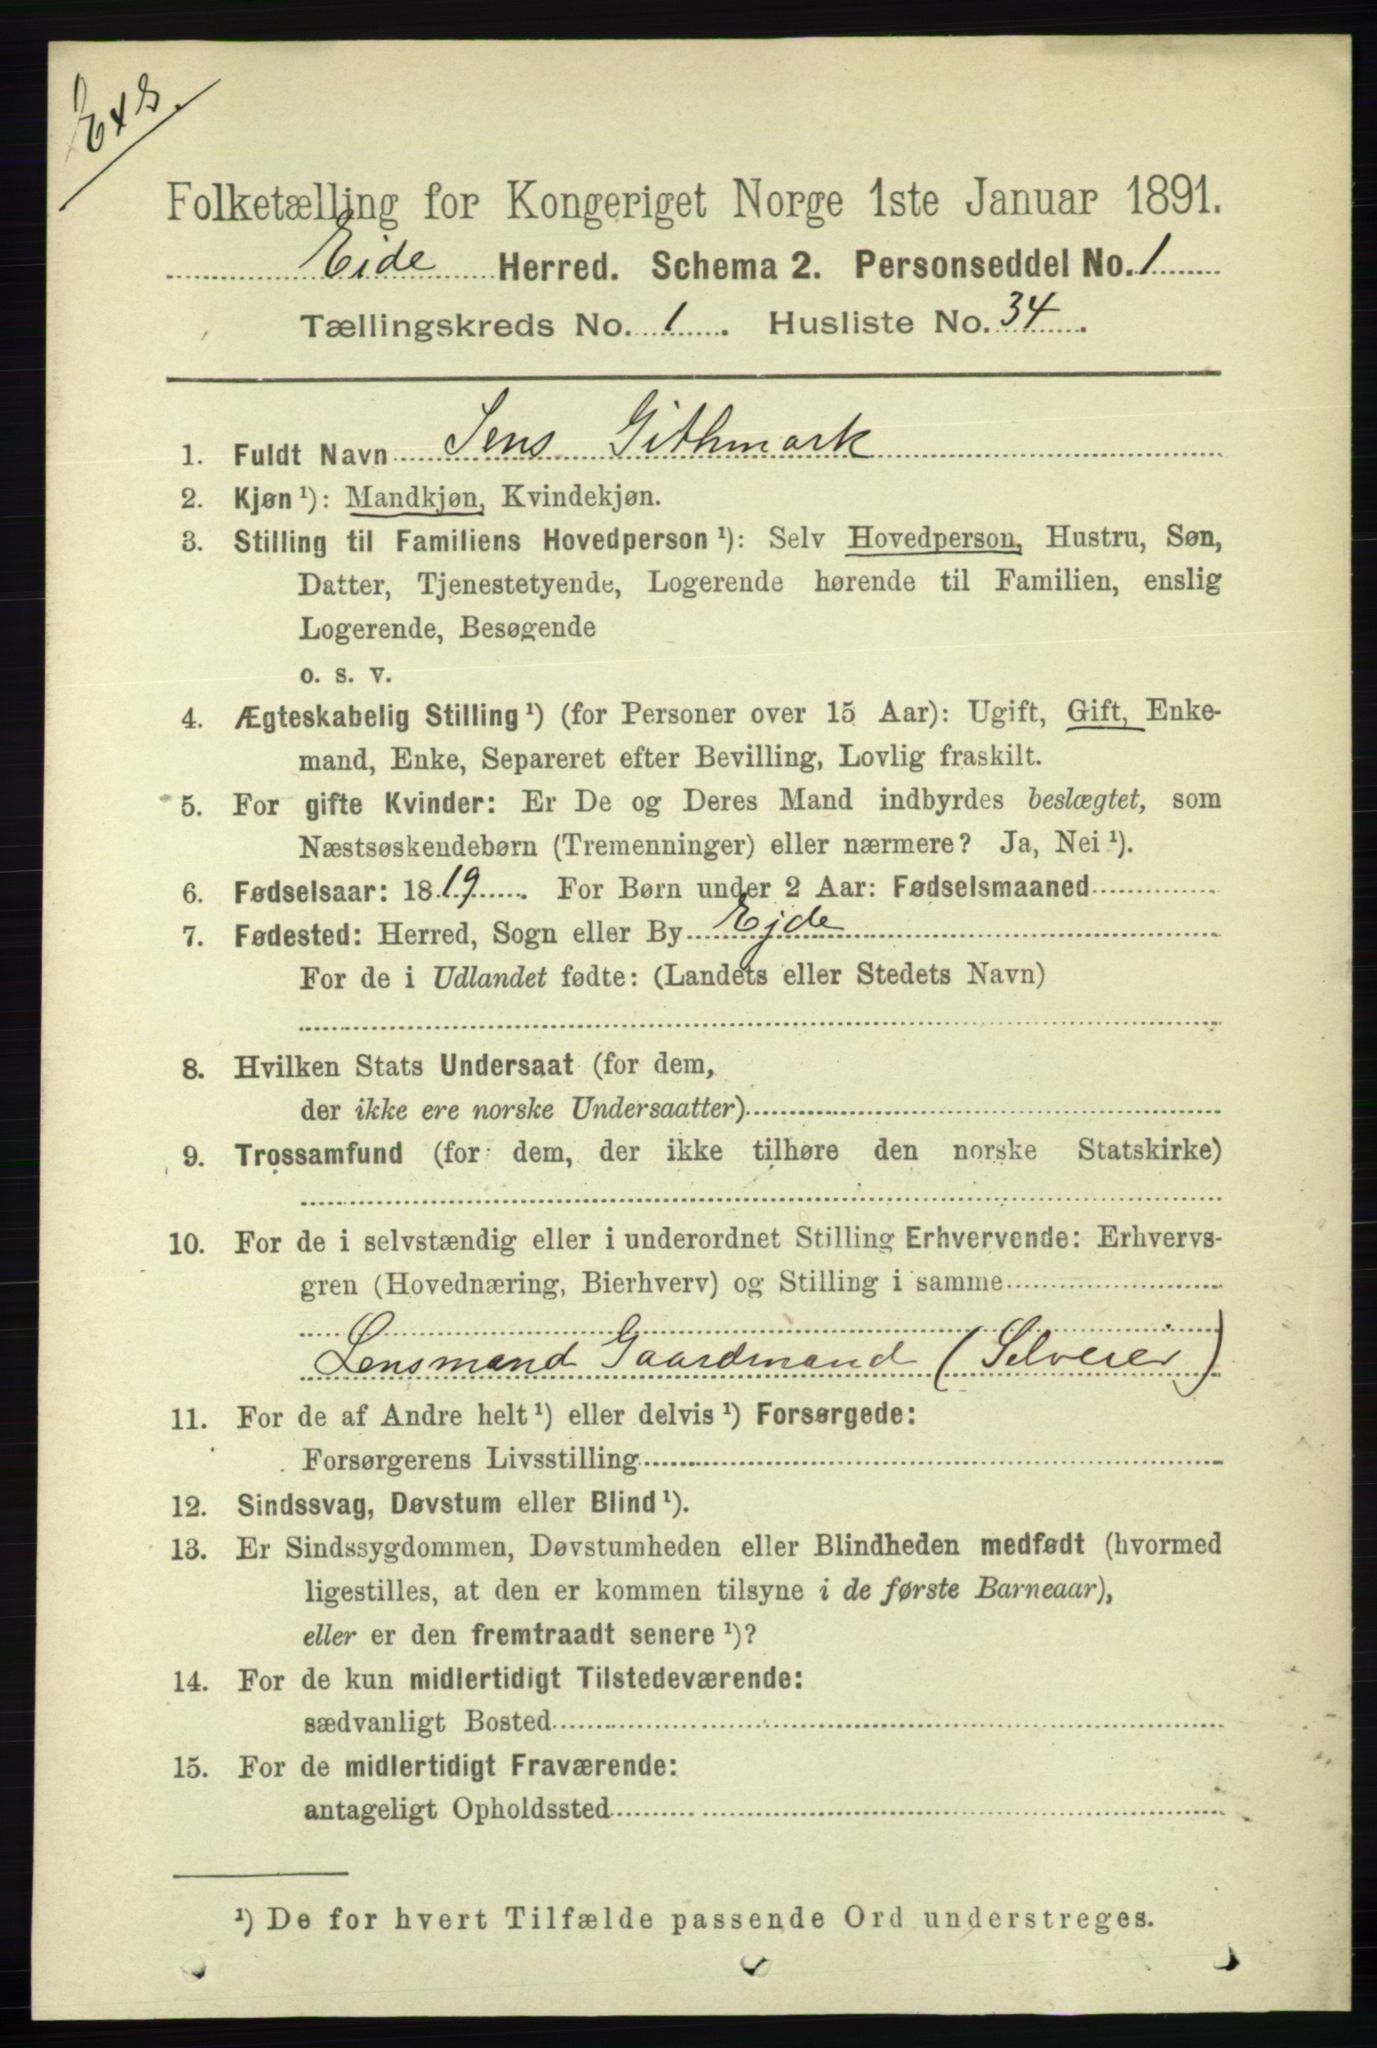 Folketælling for Kongeriget Norge 1ste Januar 1891.
Eide Herred. Schema 2. Personseddel No. 1
Tællingskreds No. 1. Husliste No. 34.
1. Fuldt Navn Jens Githmark
2. Kjøn ¹): Mandkjøn, Kvindekjøn.
3. Stilling til Familiens Hovedperson ¹): Selv Hovedperson, Hustru, Søn,
Datter, Tjenestetyende, Logerende hørende til Familien, enslig
Logerende, Besøgende
o. s. v.
4. Ægteskabelig Stilling ¹) (for Personer over 15 Aar): Ugift, Gift, Enke-
mand, Enke, Separeret efter Bevilling, Lovlig fraskilt.
5. For gifte Kvinder: Er De og Deres Mand indbyrdes beslægtet, som
Næstsøskendebørn (Tremenninger) eller nærmere? Ja, Nei ¹).
6. Fødselsaar: 1819. For Børn under 2 Aar: Fødselsmaaned
7. Fødested: Herred, Sogn eller By Ejde
For de i Udlandet fødte: (Landets eller Stedets Navn)
8. Hvilken Stats Undersaat (for dem,
der ikke ere norske Undersaatter)
9. Trossamfund (for dem, der ikke tilhøre den norske Statskirke)
10. For de i selvstændig eller i underordnet Stilling Erhvervende: Erhvervs-
gren (Hovednæring, Bierhverv) og Stilling i samme
Lensmand Gaardmand (Selveier)
11. For de af Andre helt ¹) eller delvis ¹) Forsørgede:
Forsørgerens Livsstilling
12. Sindssvag, Døvstum eller Blind ¹).
13. Er Sindssygdommen, Døvstumheden eller Blindheden medfødt (hvormed
ligestilles, at den er kommen tilsyne i de første Barneaar),
eller er den fremtraadt senere ¹)?
14. For de kun midlertidigt Tilstedeværende:
sædvanligt Bosted
15. For de midlertidigt Fraværende:
antageligt Opholdssted
¹) De for hvert Tilfælde passende Ord understreges.